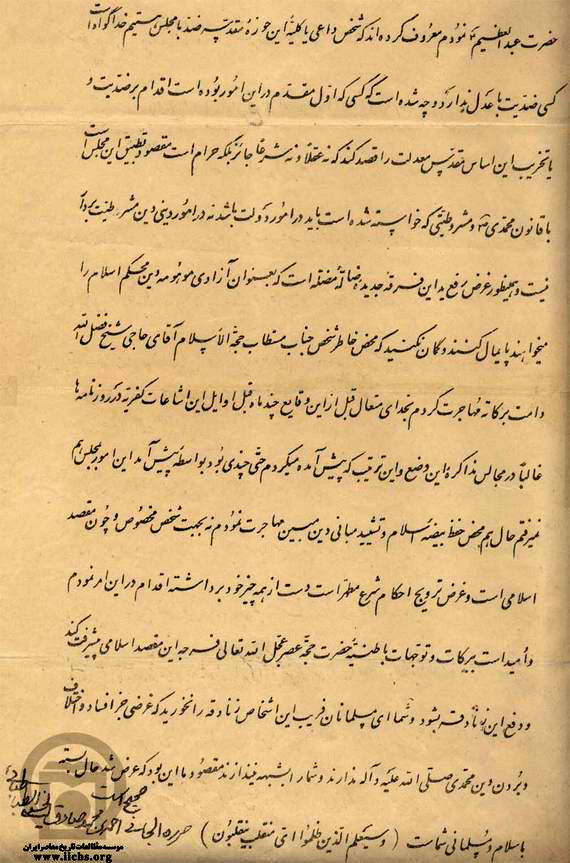 حضرت عبدالعظیم نمودم معروف کرده‌اند که شخص داعی یا کلیهٔ این حوزهٔ مقدسه ضد با مجلس هستیم خدا گواه است
کسی ضدیت با عدل ندارد و چه شده است که کسی که اول مقدم در این امور بوده است اقدام بر ضدیت و
یا تخریب این اساس مقدس معدلت را قصد کند که نه عقلاً و نه شرعاً جائز بلکه حرام است مقصود تطبیق این مجلس است
با قانون محمدی ص و مشروطیتی که خواسته شده است باید در امور دولت باشد نه در امور دینی دین مشروطیت بردار
نیست و همینطور غرض رفع ید این فرقه جدیده ضاله مضله است که بعنوان آزادی موهومه دین محکم اسلام را
میخواهند پایمال کنند و گمان نکنید که محض خاطر شخص جناب مستطاب حجة الاسلام آقای حاجی شیخ فضل الله
دامت برکاته مهاجرت کردم بخدای متعال قبل از این وقایع چند ماه قبل اوایل این اشاعات کفریه در روزنامه‌ها
غالباً در مجالس مذاکره این وضع و این ترتیب که پیش آمده میکردم حتی چندی بود بواسطه پیش آمد این امور بمجلس هم
نمیرفتم حال هم محض حفظ بیضه اسلام و تشیید مبانی دین مبین مهاجرت نمودم نه بجهت شخص مخصوص و چون مقصد
اسلامی است و غرض ترویج احکام شرع مطهر است دست از همه چیز خود برداشته اقدام در این امر نمودم
و امید است ببرکات و توجهات باطنیه حضرت حجة عصر عجل الله تعالی فرجه این مقصد اسلامی پیشرفت کند
و دفع این زنادقه بشود و شما ای مسلمانان فریب این اشخاص زنادقه را نخورید که غرضی جز افساد و اختلاف
و بردن دین محمدی صلی الله علیه و آله ندارند و شما را بشبهه نیندازند مقصود ما این بود که عرض شد حال بسته
باسلام و مسلمانی شماست (وسیعلم الذین ظلموا ای منقلب ینقلبون) حرره الجانی محمد صادق الطباطبائی
صحیح است
موسسه مطالعات تاریخ معاصر ایران
www.iichs.org